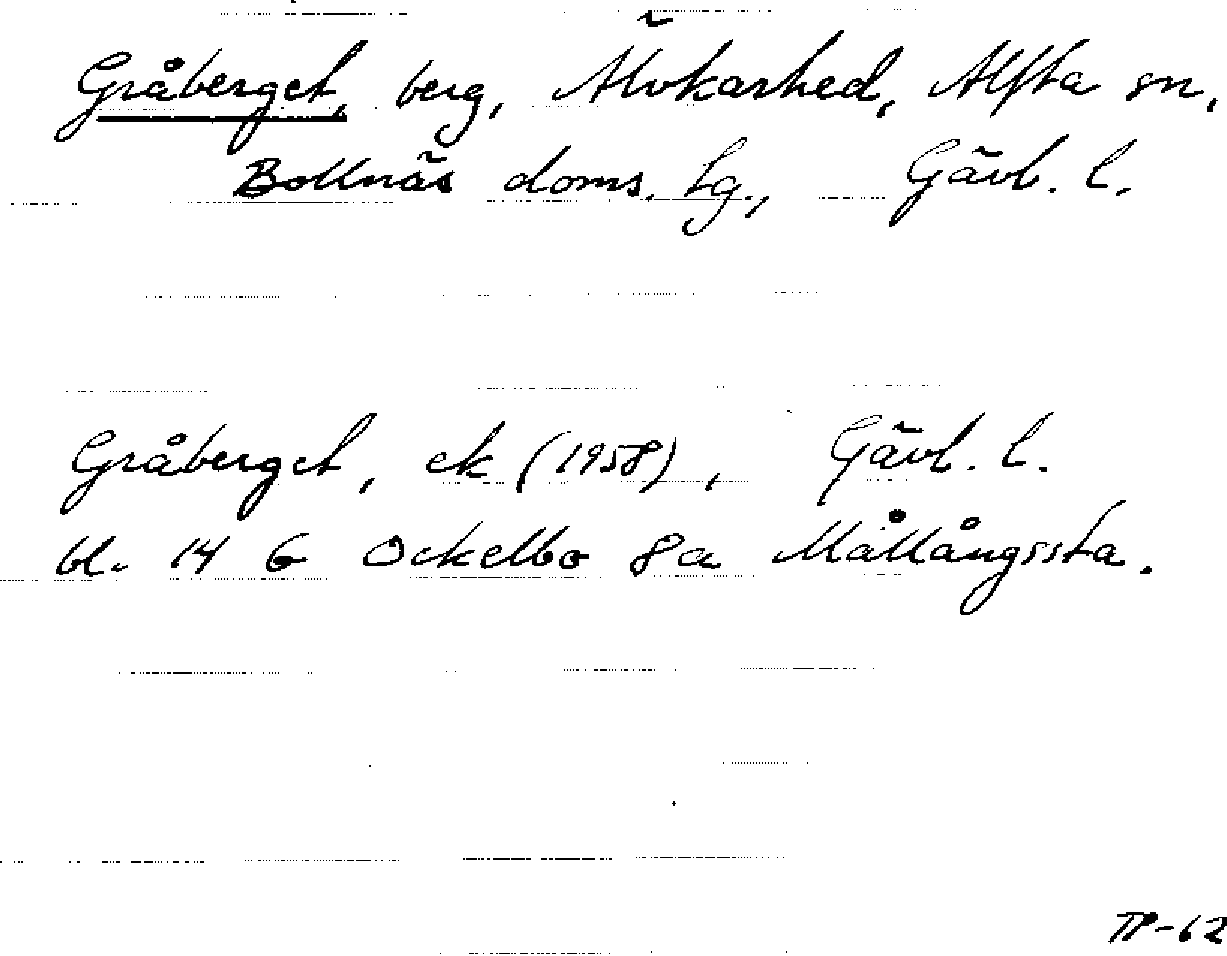 Gråberget, berg, Älvkarhed, Alfta sn,
Bollnäs doms. tg., Gävl. l.
Gråberget, ek (1958), Gävl. l.
bl. 14 G Ockelbo 8a Mållångssta.
TP-62